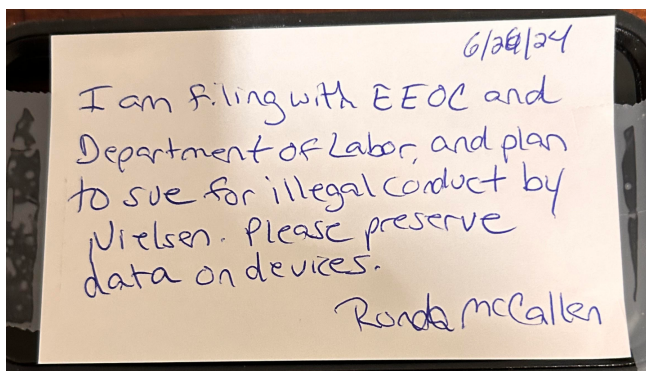 6/29/24
I am filing with EEOC and
Department of Labor, and plan
to sue for illegal conduct by
Nielsen. Please preserve
data on devices.
Ronda McCallen